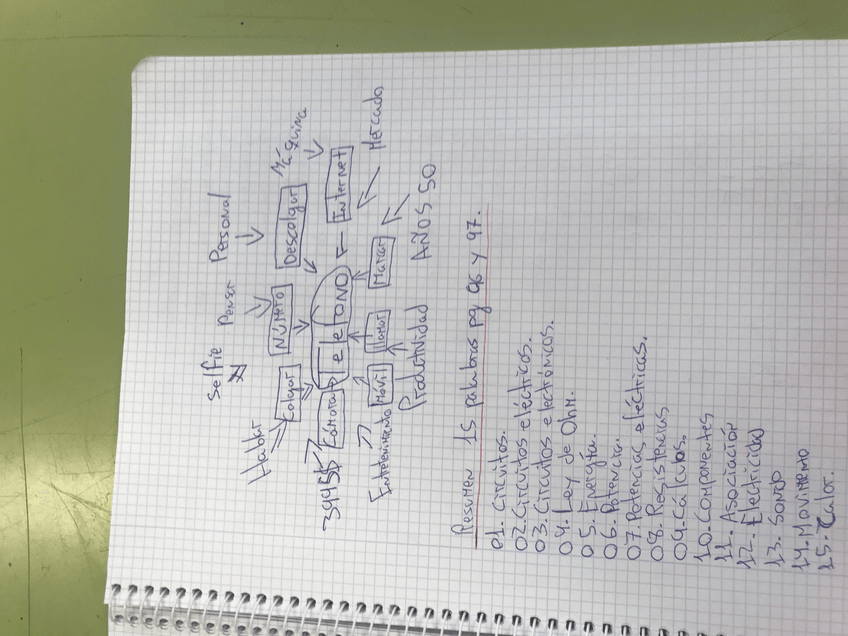 Selfie Pensar Personal
Hablar
Colgar NÚMERO Descolgar Máquina
39455 Cámara TeléfONO Internet
Entretenimiento Móvil llamar Marcar Mercado
Productividad AÑOS 50
Resumen 15 palabras pg 96 y 97.
01. Circuitos.
02. Circuitos eléctricos.
03. Circuitos electrónicos.
04. Ley de Ohm.
05. Energía.
06. Potencia.
07. Potencias eléctricas.
08. Resistencias
09. Cálculos.
10. Componentes
11. Asociación
12. Electricidad
13. Sonido
14. Movimiento
15. Calor.